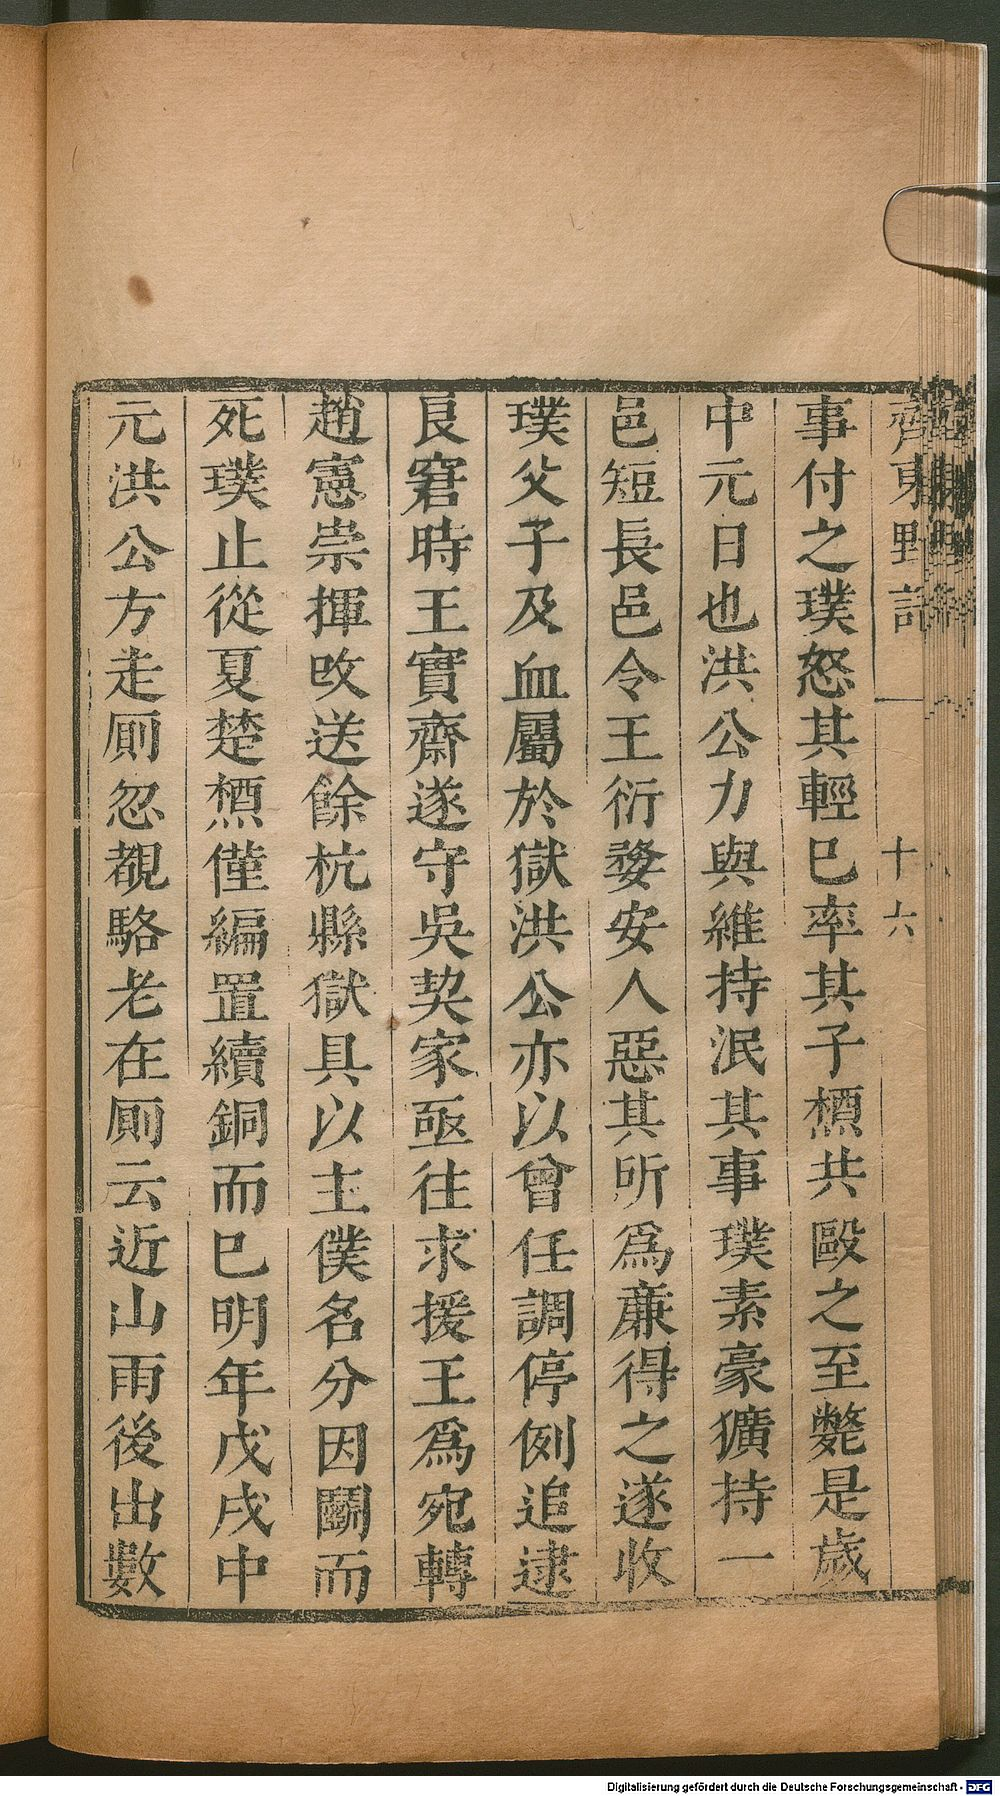 齊東野語
十六
事付之璞怒其輕已率其子槱共毆之至斃是歲
中元日也洪公力與維持泯其事璞素豪獷持一
邑短長邑令王衍婺安人惡其所爲亷得之遂收
璞父子及血屬於獄洪公亦以曾任調停例追逮
良窘時王實齋遂守吳契家亟往求援王爲宛轉
趙憲崇揮改送餘杭縣獄具以主僕名分因鬭而
死璞止從夏楚槱僅編置續銅而已明年戊戌中
元洪公方走厠忽覩駱老在厠云近山雨後出數
Digitalisierung gefördert durch die Deutsche Forschungsgemeinschaft - DFG